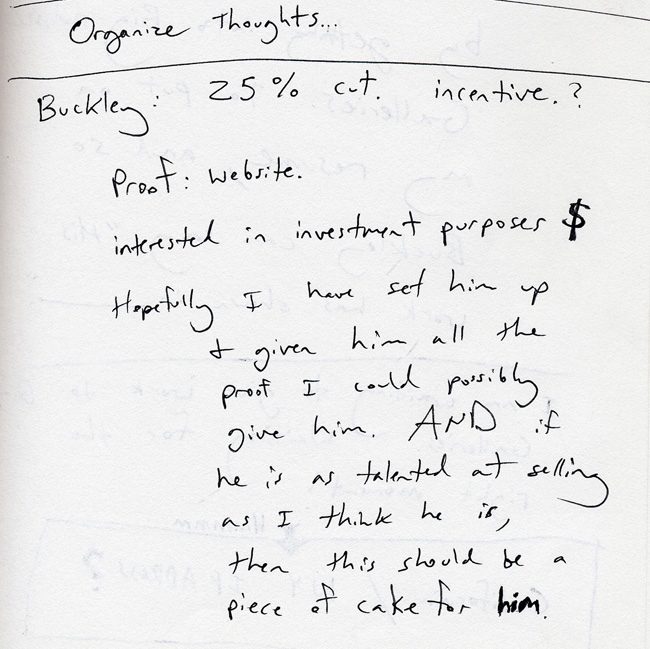 Organize Thoughts...
Buckley: 25% cut. incentive.?
Proof: website.
interested in investment purposes $
Hopefully I have set him up
+ given him all the
proof I could possibly
give him. AND if
he is as talented at selling
as I think he is,
then this should be a
piece of cake for him.